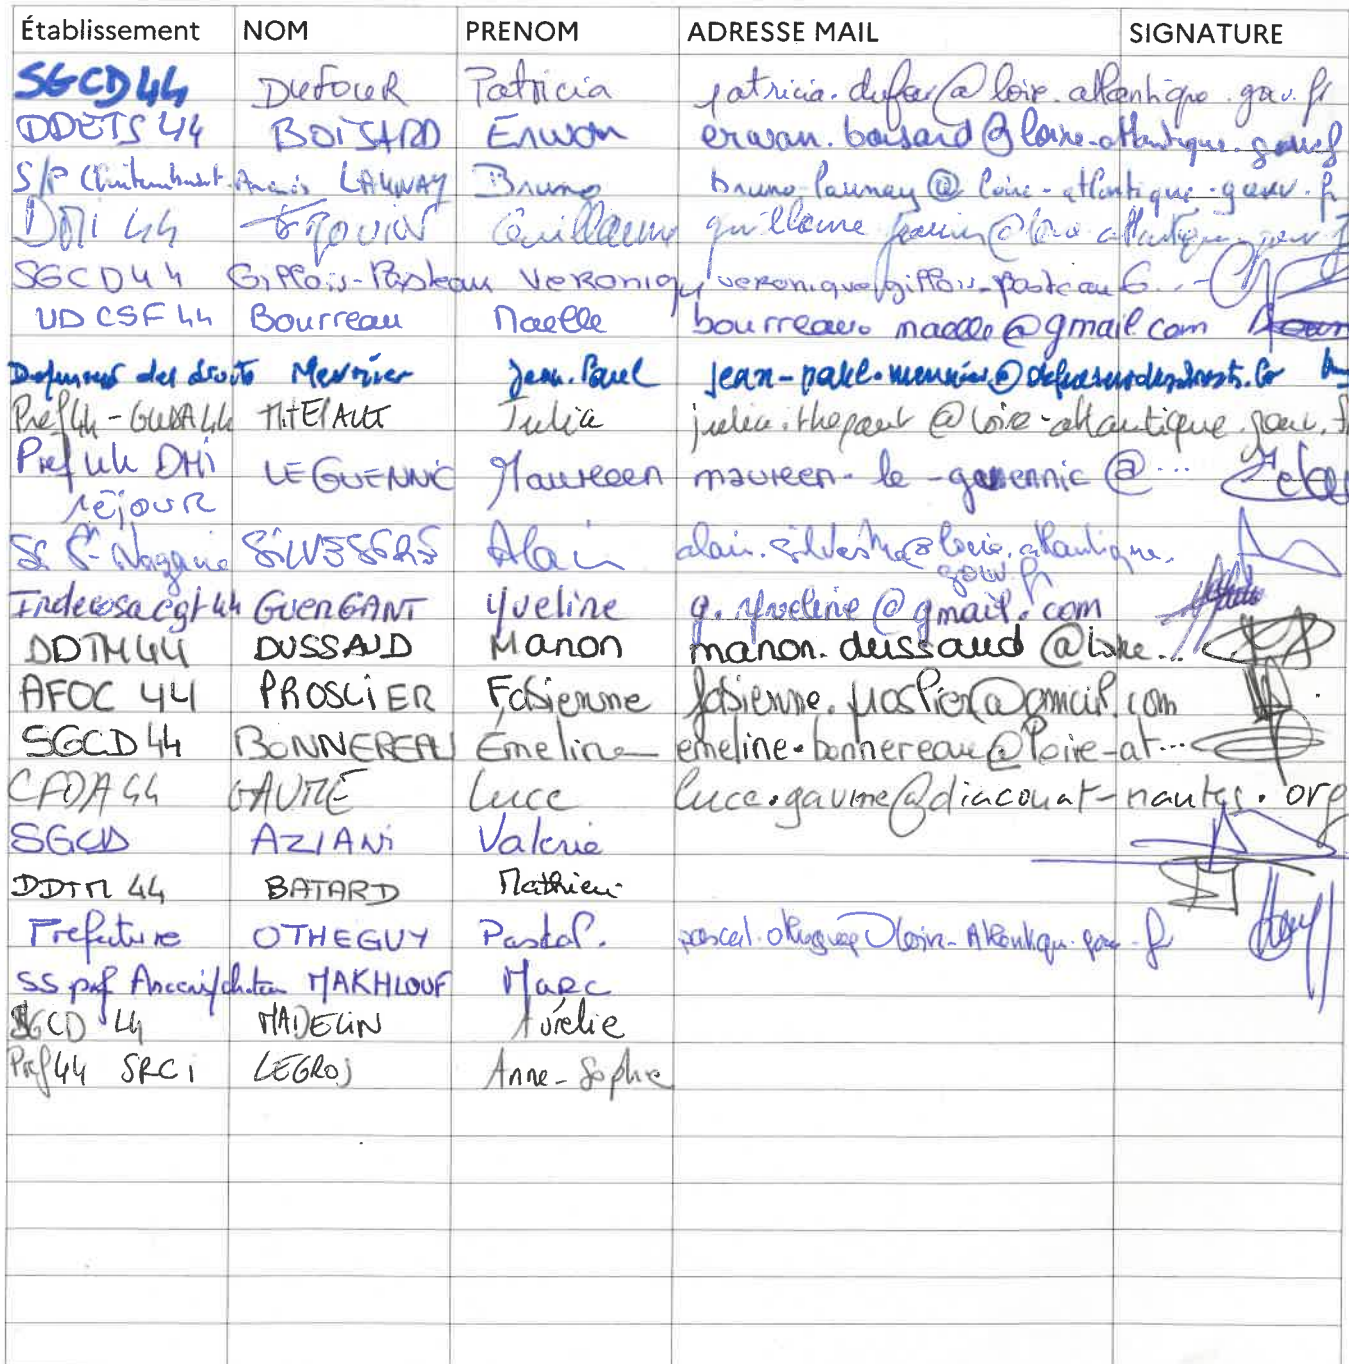 Établissement NOM PRENOM ADRESSE MAIL SIGNATURE
SGCD44 DUFOUR Patricia patricia.dufour@loire.atlantique.gouv.fr
DDETS 44 BOISARD Erwan erwan.boisard@loire-atlantique.gouv.f
S/P Ancenis LAUNAY Bruno bruno.launay@loire-atlantique.gouv.fr
DMI 44 Guillaume
SGCD44 Gillois-Pasteau Veroniqu veronique.gillois-pasteau@...
UDCSF44 Bourreau Maelle bourreau.maelle@gmail.com
Defenseur des droits Meunier Jean.Paul jean-paul.meunier@defenseurdesdroits.fr
Pref44-GUDA44 THEPAUT Julia julia.thepaut@loire-atlantique.gouv.f
Pref 44 DMI LEGUENNIC Maureen maureen-le-guennic@...
séjour
St-Nazaire SILVESTRE Alain alain.silvestre@loire.atlantique.
gouv.fr
Indecosa cgt 44 GUENGANT Yveline g.yveline@gmail.com
DDTM44 DUSSAUD Manon manon.dussaud@loire...
AFOC 44 PROSLIER Fabienne fabienne.proslier@gmail.com
SGCD44 BONNEREAU Émeline emeline.bonnereau@loire-at...
CFDA44 GAUME Luce luce.gaume@diaconat-nantes.org
SGCD AZIANI Valerie
DDTM 44 BATARD Mathieu
Prefecture OTHEGUY Pascal.
SS pref Ancenis/chateau MAKHLOUF Marc
SGCD 44 MADELIN Aurélie
Pref44 SRCi LEGROS Anne-Sophie